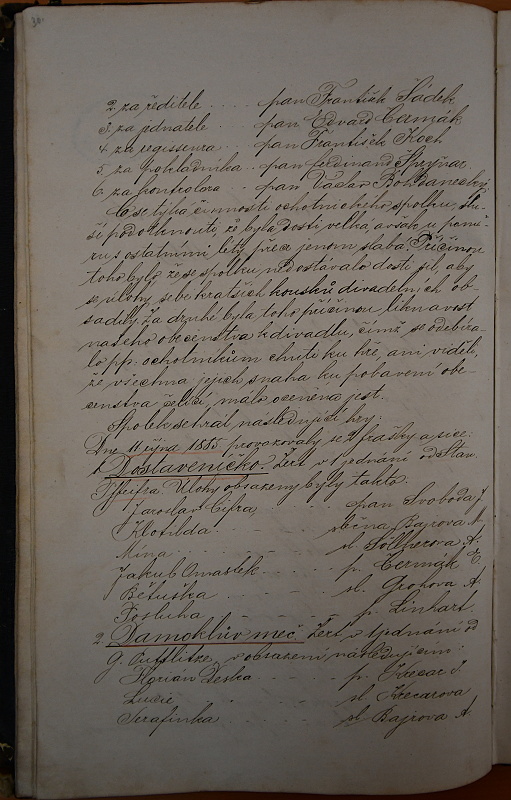 30.
2. za ředitele .... pan František Šádek
3. za jednatele .... pan Edvard Čermák
4. za regisseura .... pan František Koch
5. za pokladníka .. pan Ferdinand
6. za kontrolora - pan Václav Bohdanecký
Co se týká činnosti ochotnického spolku, slu-
ší podotknouti, že byla dosti velká avšak u pomě-
ru s ostatními léty přece jenom slabá. Příčinou
toho bylo že se spolku nedostávalo dosti sil, aby
se úlohy sebe kratších kousků divadelních ob-
sadily. Za druhé byla toho příčinou liknavost
našeho obecenstva k divadlu, čímž se odebíra-
lo pp: ochotníkům chuti ku hře, ani viděli,
že všechna jejich snaha ku pobavení obe-
censtva čelící, málo oceněna jest.
Spolek sehrál následující hry:
Dne 11 října 1885 provozovaly se 2 frašky a sice:
1. Dostaveníčko. Žert v 1 jednání od Stan.
Úlohy obsazeny byly takto:
Jaroslav Cifra - - - pan Svoboda J.
Klotilda - - - slečna Bajrova M.
Mina - - - sl. A.
Jakub Omastek - - p. Čermák E.
Bětuška - - - sl. Grohova A.
Posluha - - - p. Linhart.
2. Damoklův meč. Žert v 1 jednání od
G. s obsazení následujícím:
Florian Deska - - - p. Křecar J.
Lucie - - - sl. Křecarova
Serafinka - - - sl. Bajrova A.